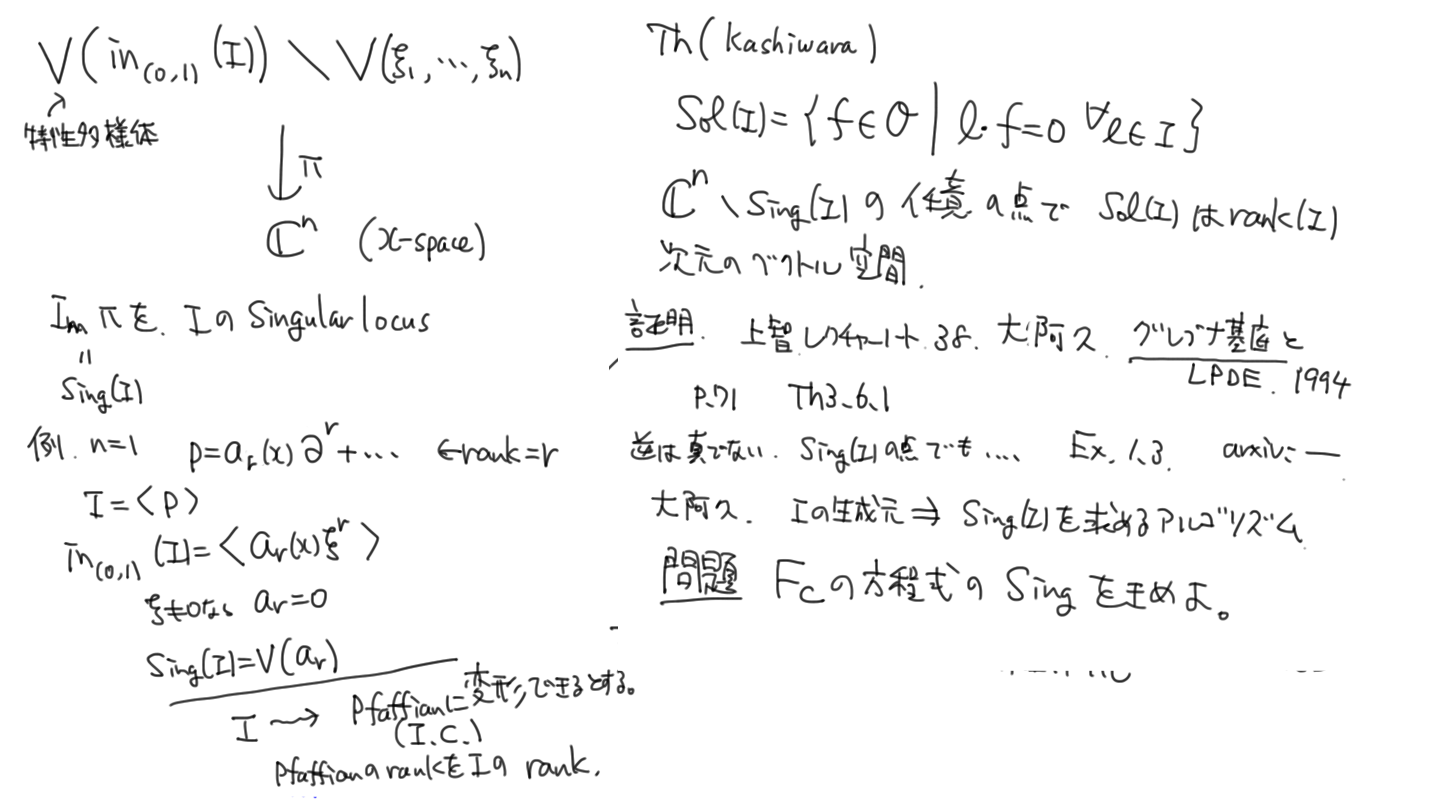 V(in_(0,1)(I)) \ V(ξ₁, ⋯, ξn)
特性多様体
↓π
ℂⁿ (x-space)
Im π を. I の Singular locus
"
Sing(I)
例. n=1 p=aᵣ(x)∂ʳ+⋯ ←rank=r
I=〈p〉
in_(0,1)(I)=〈aᵣ(x)ξʳ〉
ξ≠0なら aᵣ=0
Sing(I)=V(aᵣ)
I ⇝ Pfaffianに変形できるとする。
(I.C.)
Pfaffianのrankを Iの rank.
Th(Kashiwara)
Sol(I)={f∈𝒪 | ℓ・f=0 ∀ℓ∈I}
ℂⁿ \ Sing(I)の任意の点で Sol(I)はrank(I)
次元のベクトル空間.
証明. 上智レクチャーノート 38. 大阿久. グレブナ基底と
LPDE. 1994
P.71 Th3.6.1
逆は真でない. Sing(I)の点でも‥‥ Ex. 1.3. arxiv: —
大阿久. Iの生成元 ⇒ Sing(I)を求めるアルゴリズム
問題 F_Cの方程式の Sing をきめよ。